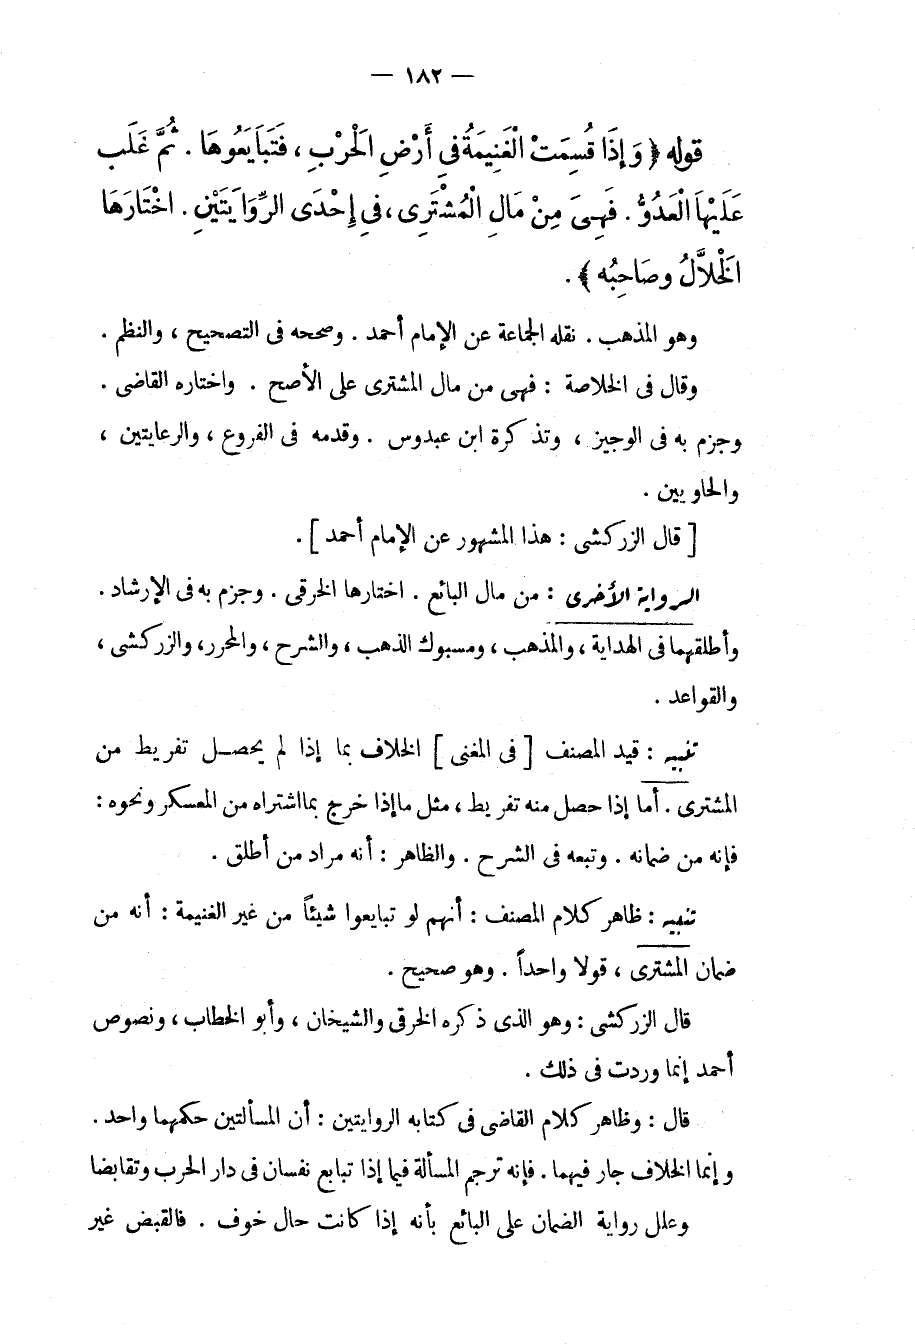 — ١٨٢ —
قوله ﴿ وَإِذَا قُسِمَتْ الْغَنِيمَةُ فِي أَرْضِ الْحَرْبِ ، فَتَبَايَعُوهَا . ثُمَّ غَلَب
عَلَيْهَا الْعَدُوُّ . فَهِىَ مِنْ مَالِ الْمُشْتَرِى ، فِي إِحْدَى الرِّوَايَتَيْنِ . اخْتَارَهَا
الْخَلاَّلُ وصَاحِبُه ﴾ .
وهو المذهب . نقله الجماعة عن الإمام أحمد . وصححه فى التصحيح ، والنظم .
وقال فى الخلاصة : فهى من مال المشترى على الأصح . واختاره القاضى .
وجزم به فى الوجيز ، وتذكرة ابن عبدوس . وقدمه فى الفروع ، والرعايتين ،
والحاويين .
[ قال الزركشى : هذا المشهور عن الإمام أحمد ] .
الرواية الأخرى : من مال البائع . اختارها الخرقى . وجزم به فى الإرشاد .
وأطلقهما فى الهداية ، والمذهب ، ومسبوك الذهب ، والشرح ، والمحرر، والزركشى ،
والقواعد .
تنبيه : قيد المصنف [ فى المغنى ] الخلاف بما إذا لم يحصل تفريط من
المشترى . أما إذا حصل منه تفريط ، مثل ما إذا خرج بما اشتراه من المعسكر ونحوه :
فإنه من ضمانه . وتبعه فى الشرح . والظاهر : أنه مراد من أطلق .
تنبيه : ظاهر كلام المصنف : أنهم لو تبايعوا شيئاً من غير الغنيمة : أنه من
ضمان المشترى ، قولا واحداً . وهو صحيح .
قال الزركشى : وهو الذى ذكره الخرقى والشيخان ، وأبو الخطاب ، ونصوص
أحمد إنما وردت فى ذلك .
قال : وظاهر كلام القاضى فى كتابه الروايتين : أن المسألتين حكمهما واحد .
وإنما الخلاف جار فيهما . فإنه ترجم المسألة فيما إذا تبايع نفسان فى دار الحرب وتقابضا
وعلل رواية الضمان على البائع بأنه إذا كانت حال خوف . فالقبض غير